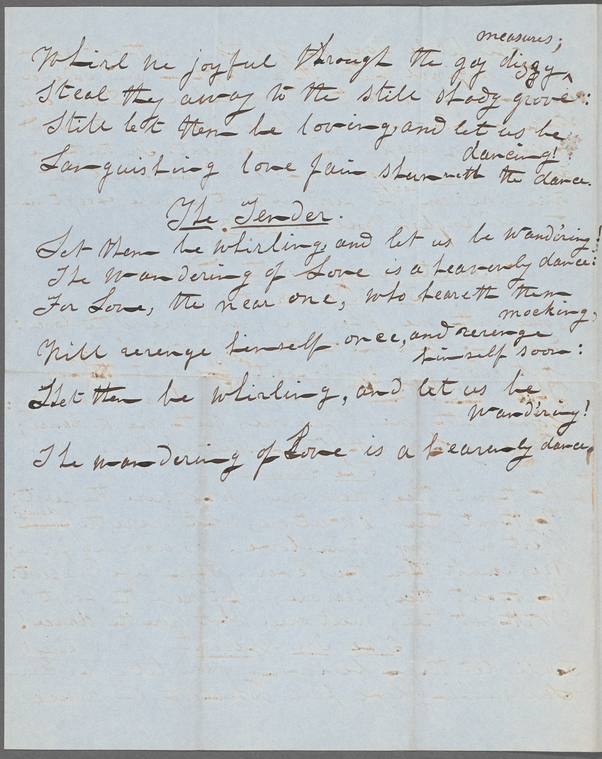 measures;
Whirl we joyful through the gay dizzy ^
Steal they away to the still shady grove:
Still let them be loving, and let us be
dancing!
Languishing love fain shunneth the dance.
The Tender.
Let them be whirling, and let us be wand'ring!
The wandering of Love is a heavenly dance:
For Love, the near one, who heareth them
mocking,
Will revenge himself once, and revenge
himself soon:
Let them be whirling, and let us be
wand'ring!
The wandering of Love is a heavenly dance.